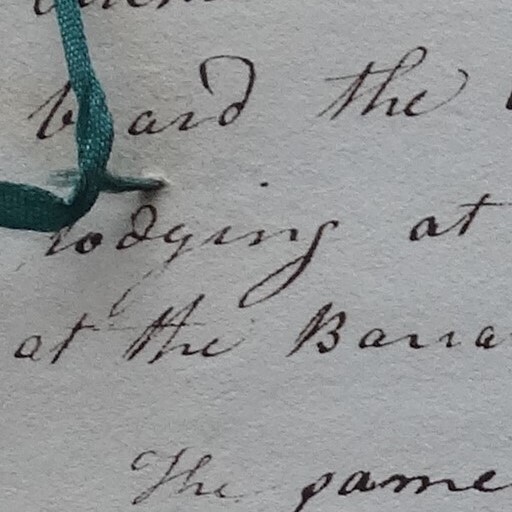 board the
lodging at
at the Barra
The game